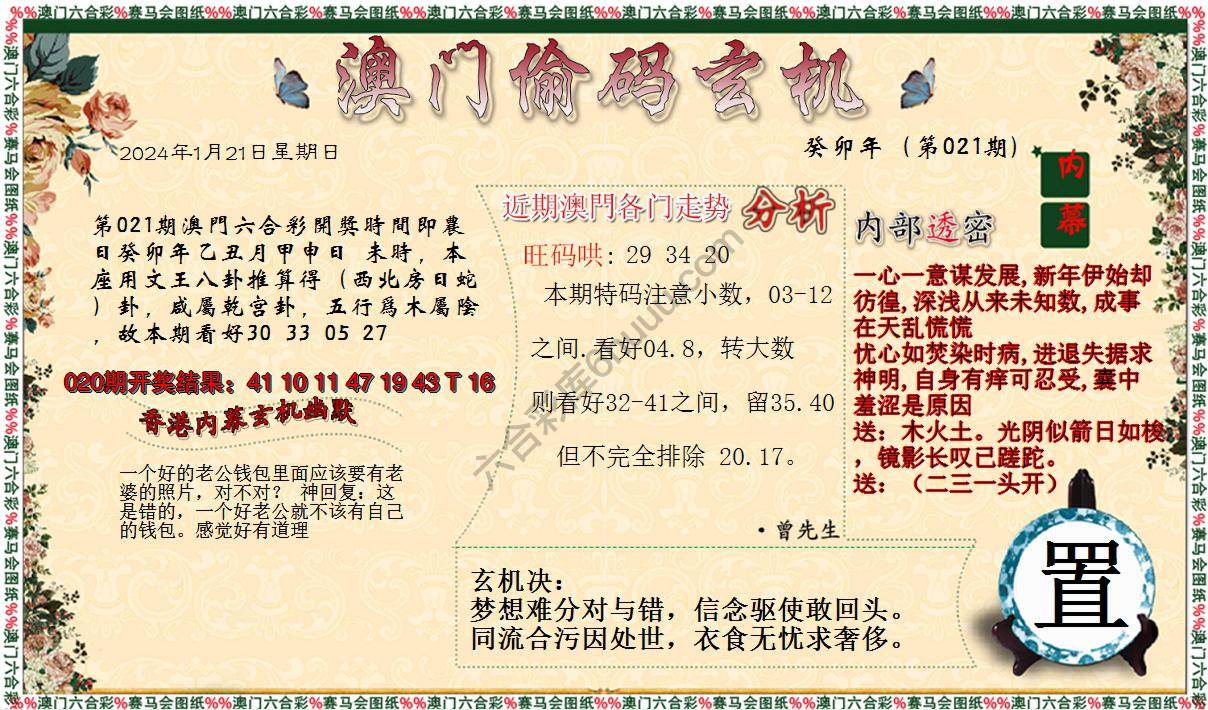 %%澳门六合彩%赛马会图纸%%澳门六合彩%赛马会图纸%%澳门六合彩%赛马会图纸%%澳门六合彩%赛马会图纸%%澳门六合彩%赛马会图纸%%澳门六合彩%赛马会图纸%%
澳门偷码玄机
2024年1月21日星期日
癸卯年（第021期）
内幕
第021期澳門六合彩開獎時間即農
日癸卯年乙丑月甲申日 未時，本
座用文王八卦推算得（西北房日蛇
）卦，咸屬乾宫卦，五行爲木屬陰
，故本期看好30 33 05 27
020期开奖结果：41 10 11 47 19 43 T 16
香港内幕玄机幽默
一个好的老公钱包里面应该要有老
婆的照片，对不对？ 神回复：这
是错的，一个好老公就不该有自己
的钱包。感觉好有道理
近期澳門各门走势 分析
旺码哄: 29 34 20
本期特码注意小数，03-12
之间.看好04.8，转大数
则看好32-41之间，留35.40
但不完全排除 20.17。
·曾先生
内部透密
一心一意谋发展,新年伊始却
彷徨,深浅从来未知数,成事
在天乱慌慌
忧心如焚染时病,进退失据求
神明,自身有痒可忍受,囊中
羞涩是原因
送：木火土。光阴似箭日如梭
，镜影长叹已蹉跎。
送：（二三一头开）
玄机决：
梦想难分对与错，信念驱使敢回头。
同流合污因处世，衣食无忧求奢侈。
置